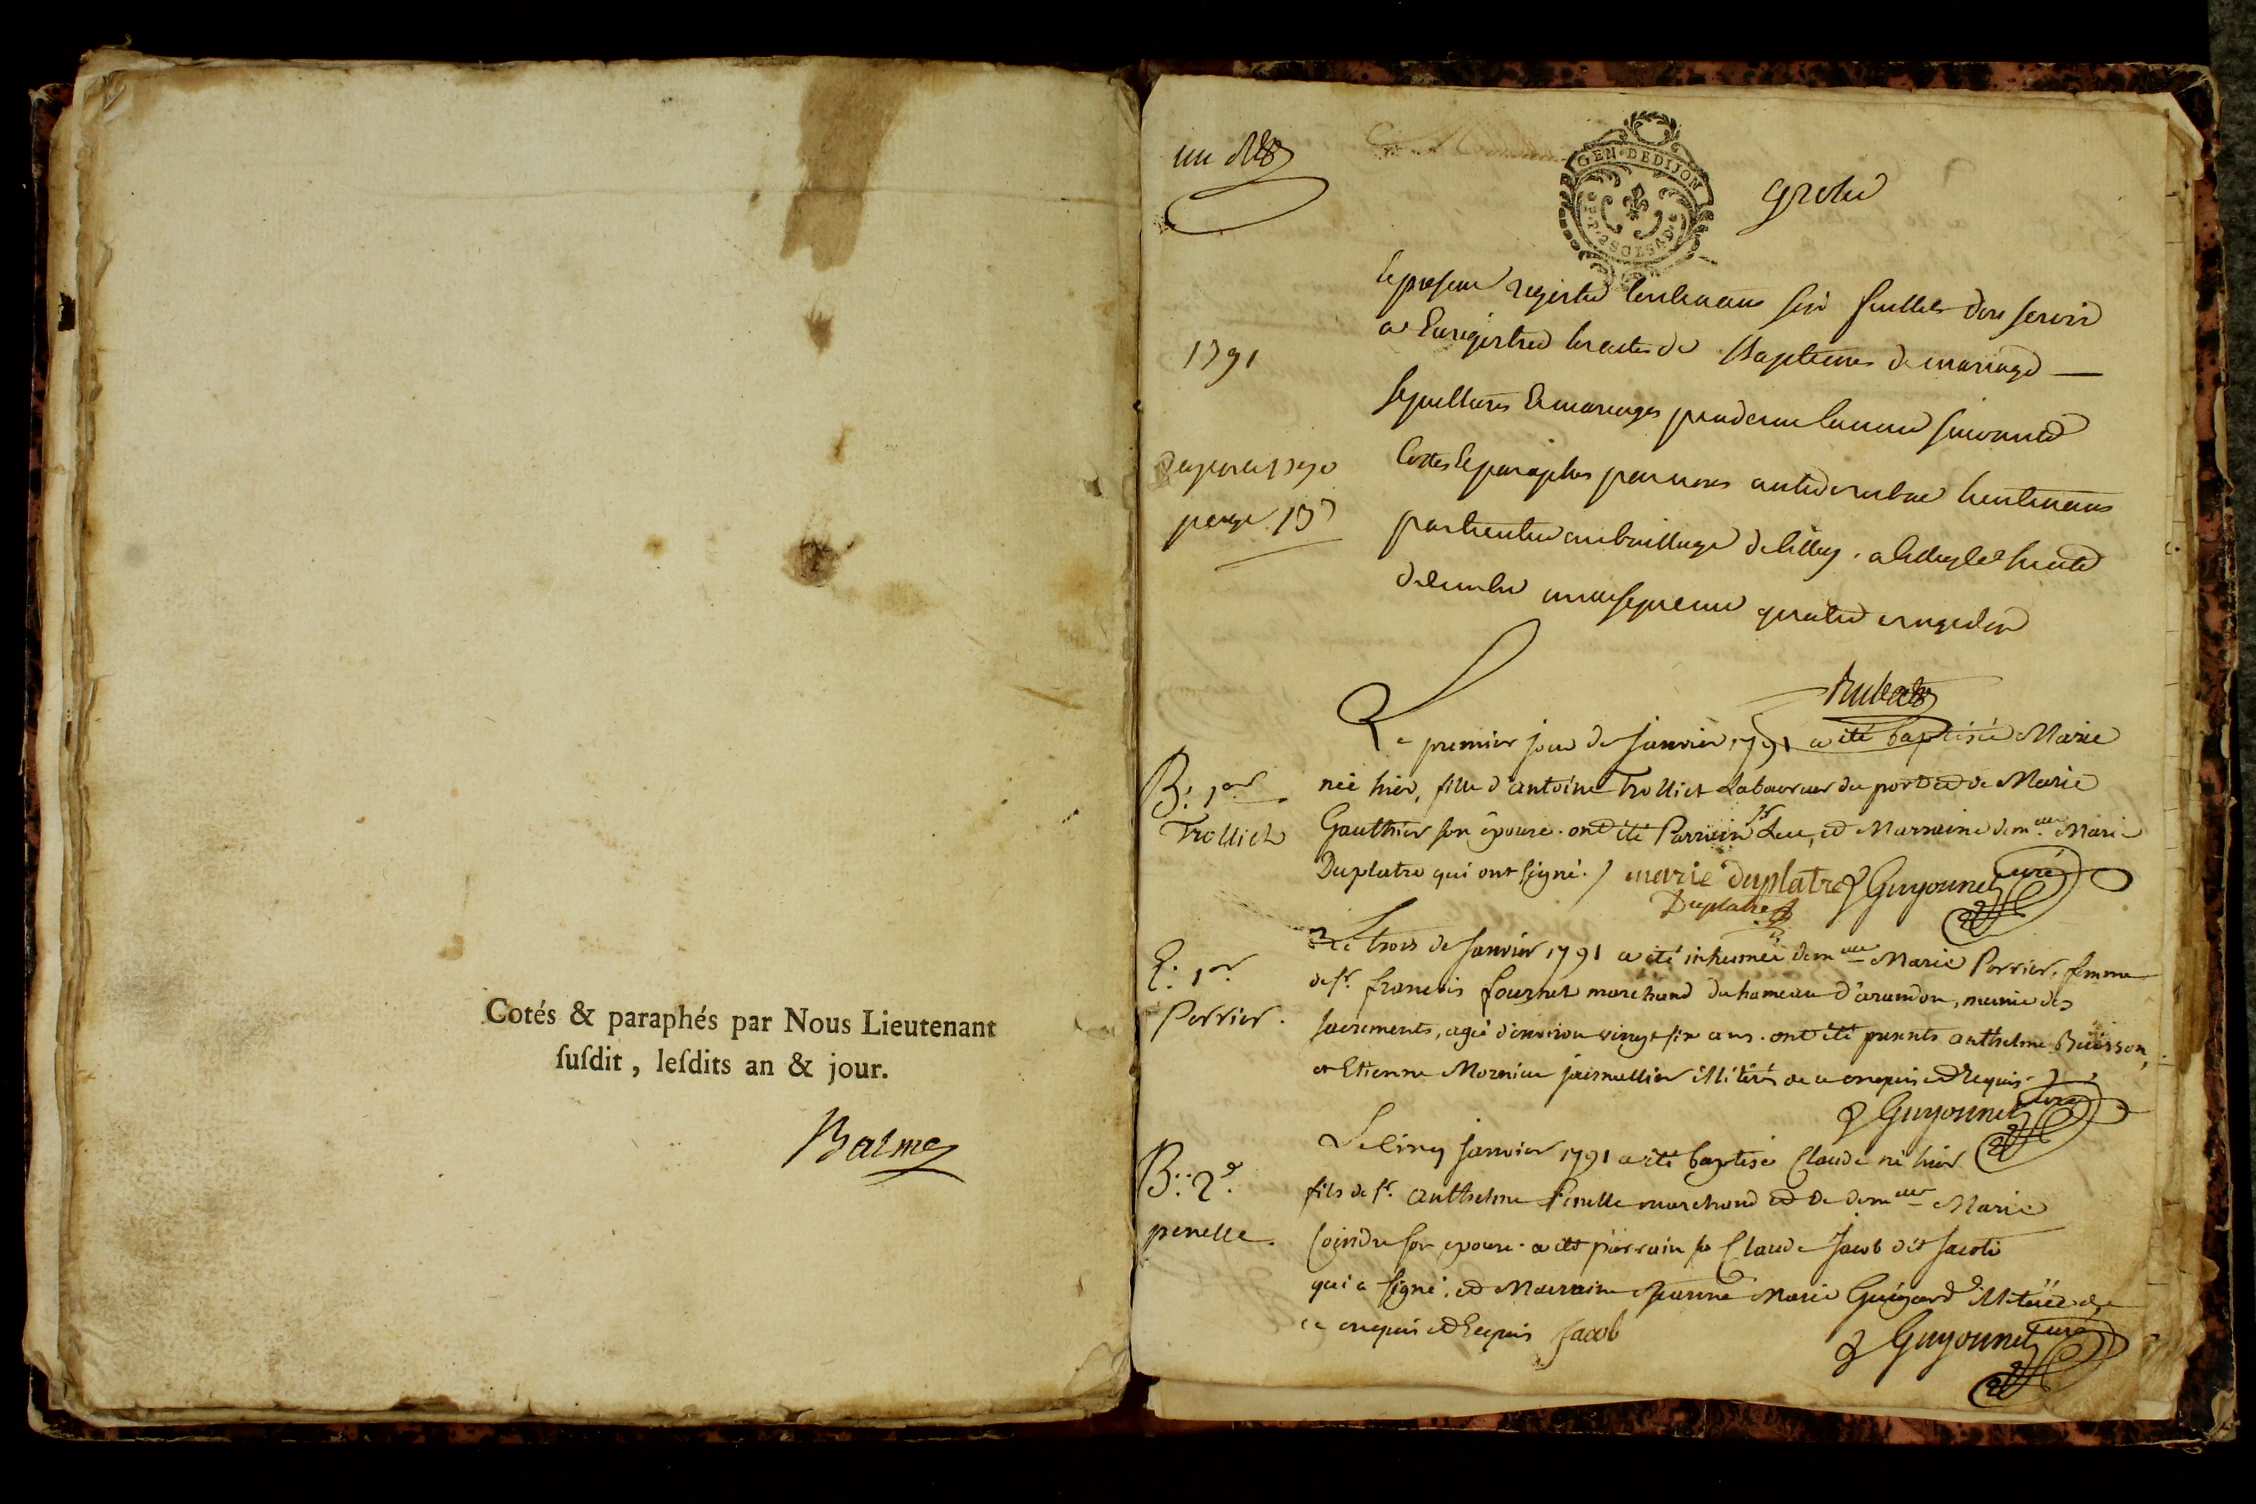 Cotés & paraphés par Nous Lieutenant
ſuſdit, leſdits an & jour.
Balme
un
GEN·DEDIJON
Groslée
le present registre contenant six feuillets doit servir
a Enregistrer les actes de Baptemes de mariage —
sepultures & mariages pendant lannée suivante
Cottés & paraphés par nous lieutenant
particulier au bailliage de belley. a belley le trente
decembre mil sept cent quatre vingt dix
1791
page 137
Rubat
B: 1er
Trolliet
Le premier jour de Janvier 1791 a été baptisée Marie
née hier, fille d'antoine Trolliet Laboureur du port et de Marie
Gauthier son épouse. ont été Parrain sr Luc, et Marraine demlle Marie
Duplatre qui ont signé./. marie duplatre Guyonnet curé
Duplatre
E: 1er
Perrier.
Le trois de Janvier 1791 a été inhumée demlle Marie Perrier, femme
de sr. francois fournet marchand du hameau d'arandon, munie des
sacrements, agée d'environ vingt six ans. ont été presents anthelme Buisson,
et Etienne illitérés de ce enquis et Requis
Guyonnet curé
B: 2e.
penelle.
Le cinq janvier 1791 a été baptisé Claude né hier
fils de sr. anthelme Penelle marchand et de demlle Marie
Coindre son epouse. a été parrain sr Claude Jacob dit Jacoti
qui a signé, et Marraine Jeanne Marie Guigard illitérée de
ce enquise et Requis Jacob
Guyonnet curé